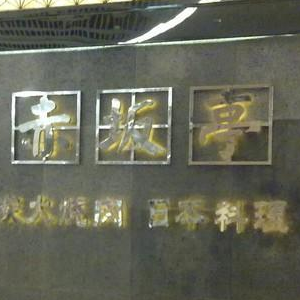 赤坂亭
炭火燒肉 日本料理